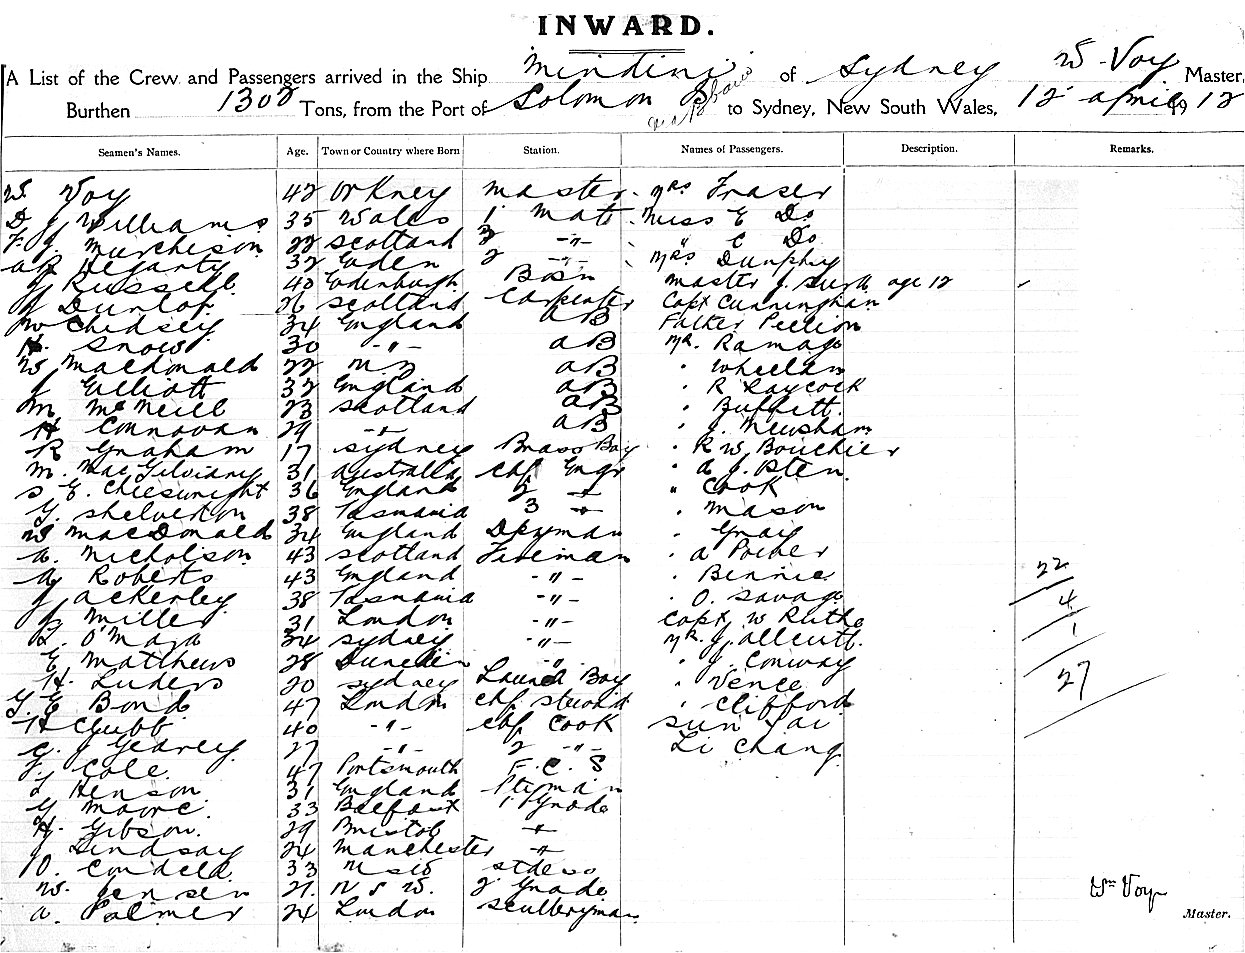 INWARD.
A List of the Crew and Passengers arrived in the Ship Mindini of Sydney W Voy Master,
Burthen 1308 Tons, from the Port of Solomon Is to Sydney, New South Wales, 12 April 1912
Seamen's Names. Age. Town or Country where Born Station. Names of Passengers. Description. Remarks.
W Voy 42 Orkney Master Mrs Fraser
D J Williams 35 Wales 1 Mate Miss E Do
F J Murchison 22 Scotland 2 -"- " C Do
Hegarty 32 Eden 2 -"- Mrs Dunphy
J Russell 40 Edinburgh Bosn Master J age 12
J Dunlop 26 Scotland Carpenter Capt Cunningham
W Chidsey 34 England AB Father Pellion
H. Snow 30 -"- AB Mr. Ramage
W Macdonald 22 NZ AB " Wheelan
J Elliott 32 England AB " R Raycock
M McNeill 23 Scotland AB " Buffett
H Connovan 29 -"- AB " J. Newsham
R Graham 17 Sydney Brass Boy " R W Bouchier
M. 31 Australia Chf Engr " A J.
S E. Cheeswright 36 England 2 -"- " Cook
G. Shelverton 38 Tasmania 3 -"- " Mason
W MacDonald 34 England Dkyman " Gray
A. Nicholson 43 Scotland Fireman " A
A Roberts 43 England -"- " Bennie
J Ackerley 38 Tasmania -"- " O. Savage
J Miller 31 London -"- Capt W
L. O'Mara 34 Sydney -"- Mr. J. Allcutt
E Matthews 28 Dunedin -"- " J. Conway
H. Luders 20 Sydney Launch Boy " Vence
G. E Bond 47 London Chf Steward " Clifford
H Chubb 40 -"- Chf Cook Sun Yai
C. J Gedney 27 -"- 2 -"- Li Chang
J. Cole 47 Portsmouth F. C. S
Henson 31 England Ptyman
G Moore 33 Belfast 1 Grade
H. Gibson. 29 Bristol -"-
J Lindsay 24 Manchester -"-
O. 33 NSW Stdess
W. Jensen 21. N S W. 2 Grade
A. Palmer 24 London Sculleryman
22
4
1
27
Wm Voy
Master.